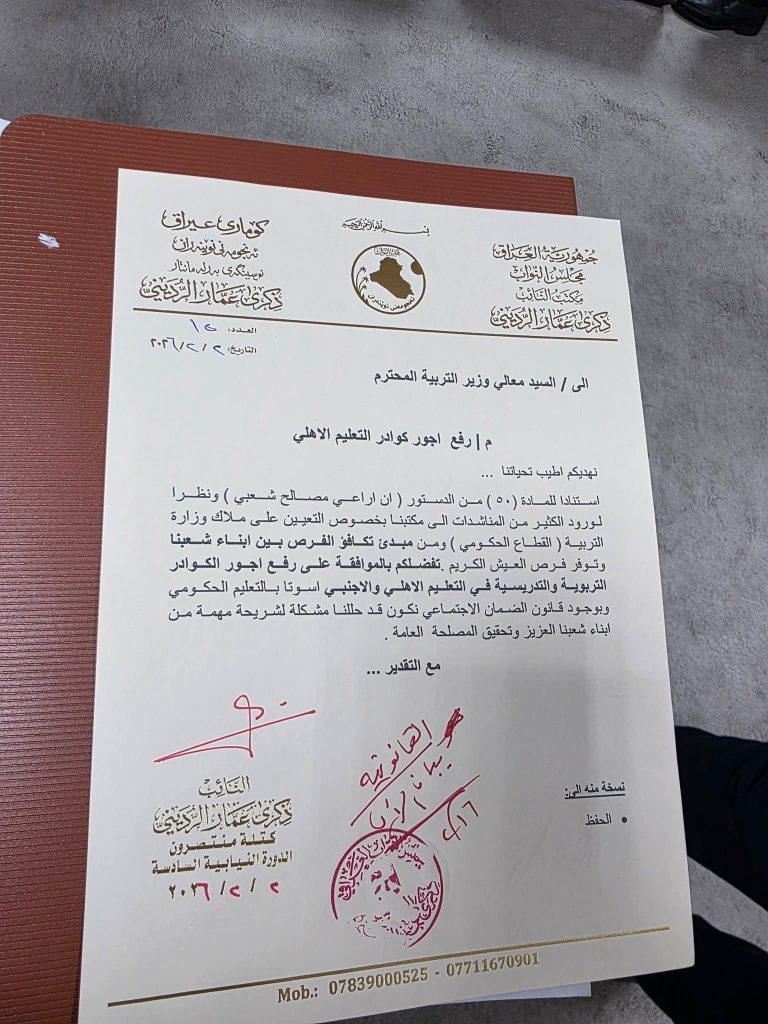 بسم الله الرحمن الرحيم
جمهورية العراق
مجلس النواب
مكتب النائب
ذكرى عمار الرديني
كۆماری عیراق
ئەنجومەنی نوێنەران
نوسینگەی پەرلەمانتار
ذكرى عمار الرديني
العدد: ١٥
التاريخ: ٢٠٢٦/٢/٢
الى / السيد معالي وزير التربية المحترم
م | رفع اجور كوادر التعليم الاهلي
نهديكم اطيب تحياتنا ...
استنادا للمادة (٥٠) من الدستور ( ان اراعي مصالح شعبي ) ونظرا
لورود الكثير من المناشدات الى مكتبنا بخصوص التعيين على ملاك وزارة
التربية ( القطاع الحكومي ) ومن مبدئ تكافؤ الفرص بين ابناء شعبنا
وتوفر فرص العيش الكريم .تفضلكم بالموافقة على رفع اجور الكوادر
التربوية والتدريسية في التعليم الاهلي والاجنبي اسوتا بالتعليم الحكومي
وبوجود قانون الضمان الاجتماعي نكون قد حللنا مشكلة لشريحة مهمة من
ابناء شعبنا العزيز وتحقيق المصلحة العامة .
مع التقدير ...
القانونية
النائب
ذكرى عمار الرديني
كتلة منتصرون
الدورة النيابية السادسة
٢٠٢٦ / ٢ / ٢
نسخة منه الى:
• الحفظ
Mob.: 07839000525 - 07711670901